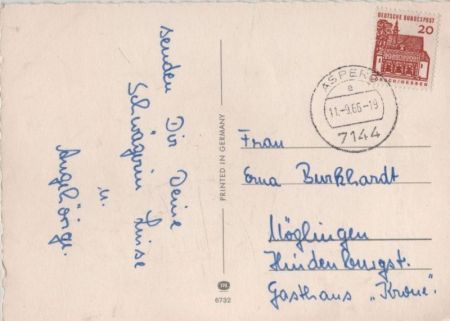 senden Dir Deine
Schwägerin Luise
u.
Angehörige.
PRINTED IN GERMANY
m
6732
DEUTSCHE BUNDESPOST
20
LORSCH/HESSEN
ASPERG
a
11.-9.66-19
7144
Frau
Erna Burkhardt
Möglingen
Hindenburgst.
Gasthaus „Krone"